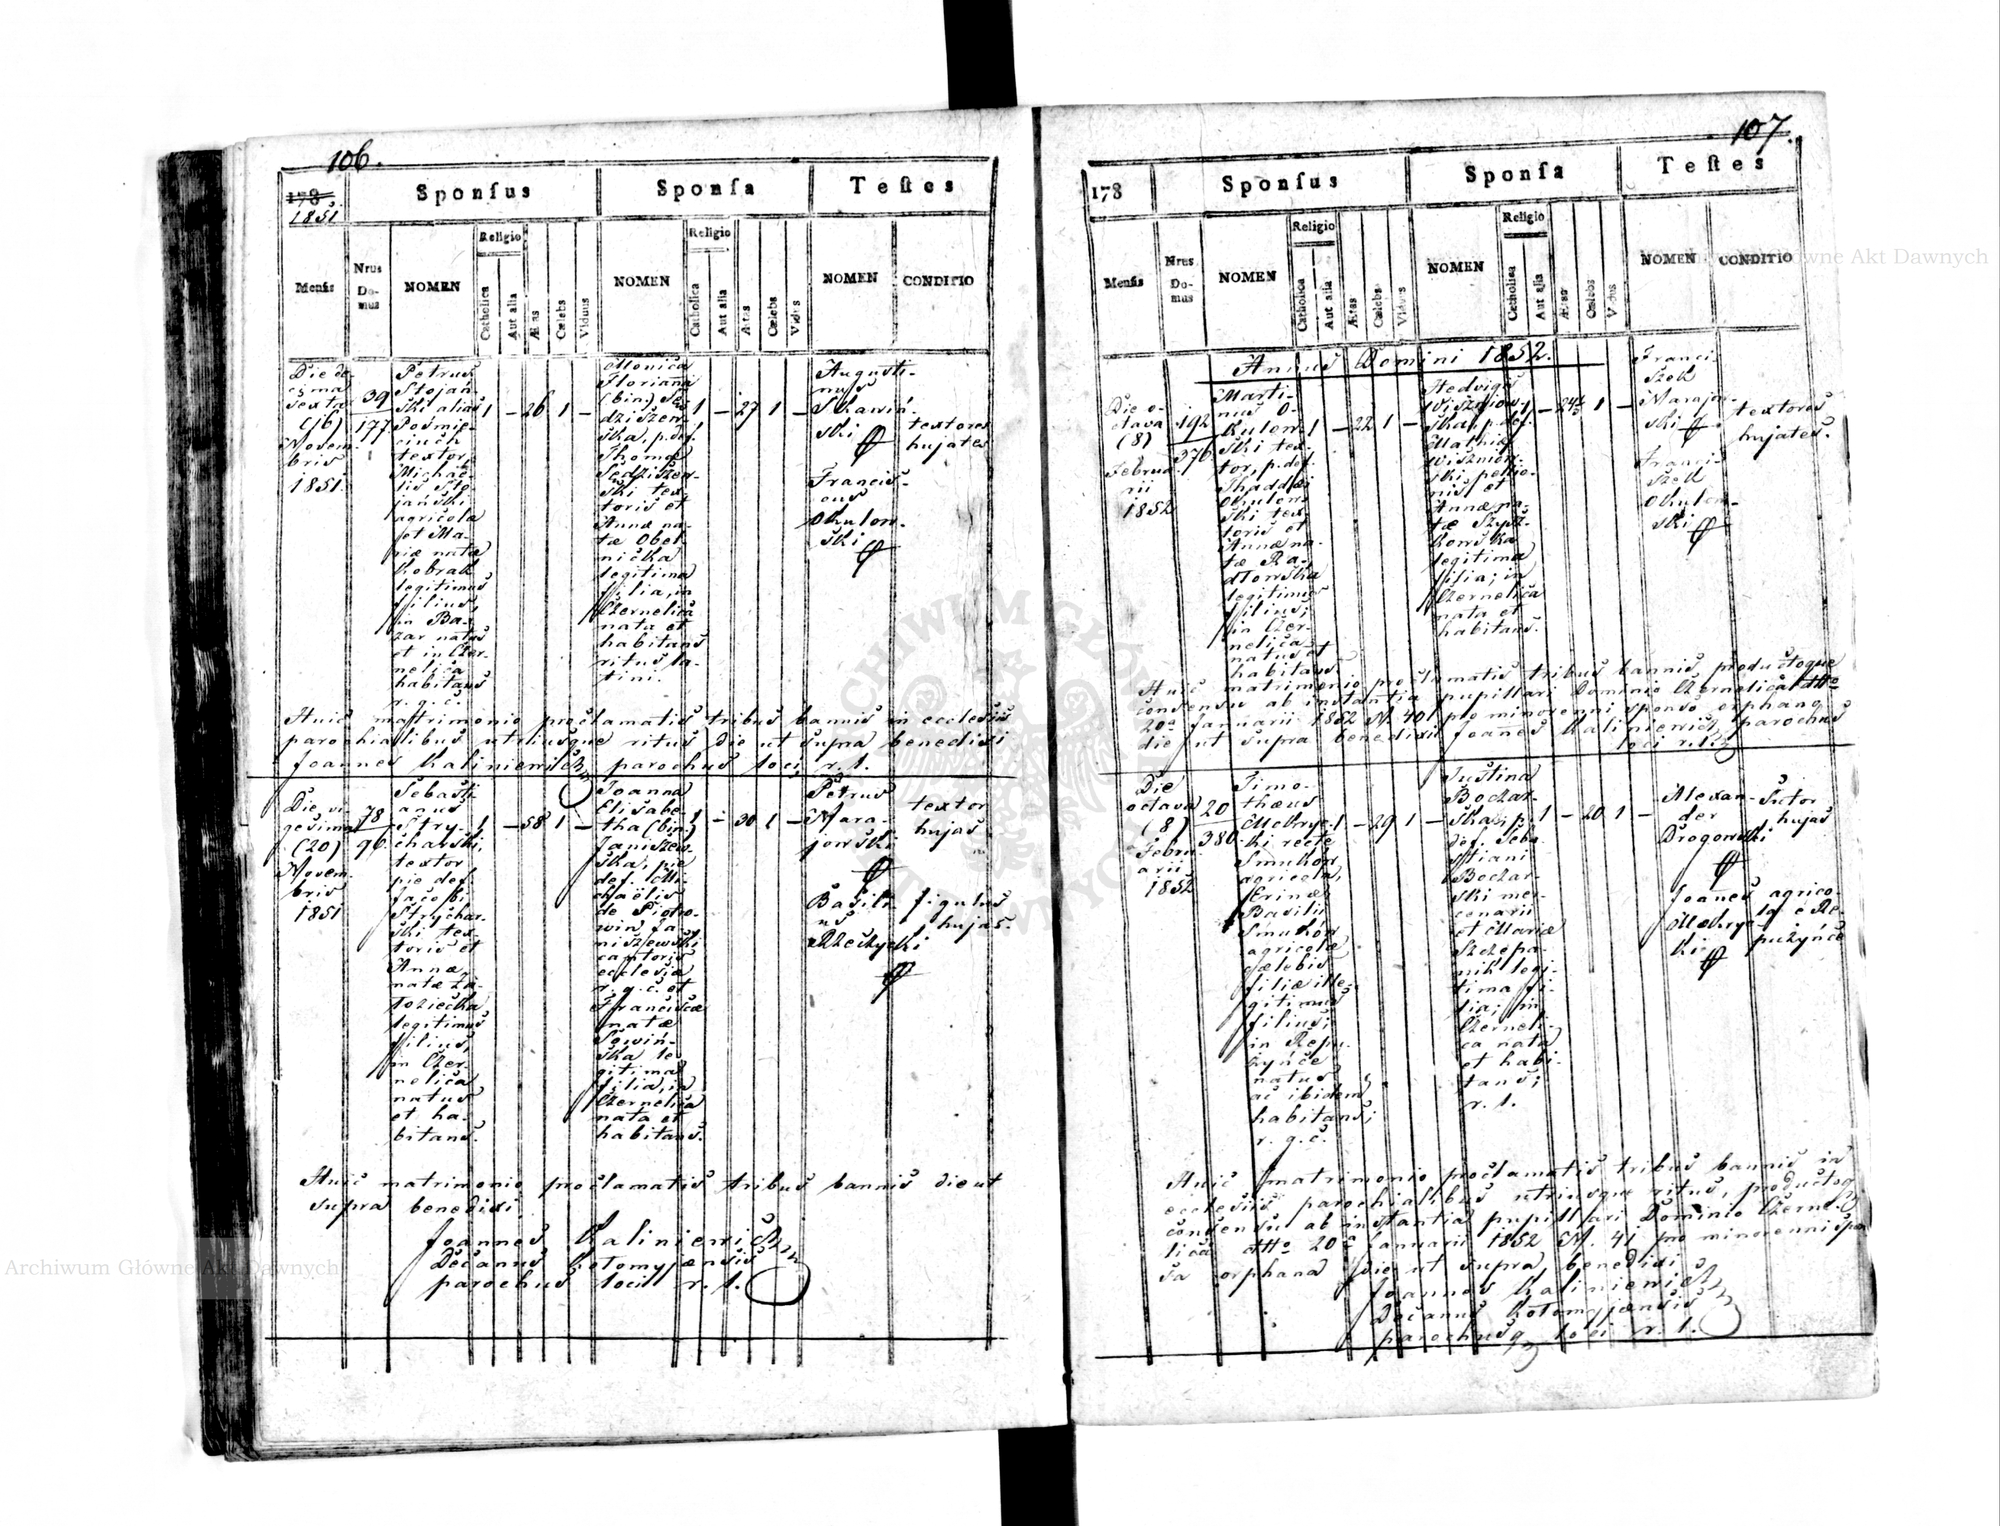 106.
178
1851.
Sponsus
Sponsa
Testes
Religio
Religio
Mensis
Nrus Do-mus
NOMEN
Catholica
Aut alia
Ætas
Cœlebs
Viduus
NOMEN
Catholica
Aut alia
Ætas
Cœlebs
Vidus
NOMEN
CONDITIO
Die de-
cima
sexta
(16)
Novem-
bris
1851.
39
177
Petrus
Stojań-
ski alias
textor,
Michaë-
lis Sto-
jański
agricolæ
et Ma-
riæ natæ
Kobrak
legitimus
filius,
in Ba-
zar natus
et in Czer-
nelica
habitans
r. g. c.
1 – 26 1 –
Monica
Floriana
(bin.) Sę-
dziszew-
ska, p. def.
Thomæ
Sędziszew-
ski tex-
toris et
Annæ na-
tæ Obel-
nicka
legitima
filia, in
Czernelica
nata et
habitans
ritus la-
tini.
1 – 27 1 –
Augusti-
nus
Skawiń-
ski
Francis-
cus
Okulow-
ski
textores
hujates
Huic matrimonio proclamatis tribus bannis in ecclesiis
parochialibus utriusque ritus die ut supra benedixi
Joannes Kaliniewicz parochus loci r. l.
Die vi-
gesima
(20)
Novem-
bris
1851
78
96
Sebasti-
anus
Stry-
charski,
textor
pie def.
Jacobi
Strychar-
ski tex-
toris et
Annæ
natæ Za-
łoziecka
legitimus
filius,
in Czer-
nelica
natus
et ha-
bitans.
1 – 58 1 –
Joanna
Elisabe-
tha (bin.)
Janiszew-
ska, pie
def. Mi-
chaëlis
de Piotro-
win Ja-
niszewski
cantoris
ecclesiæ
r. g. c. et
Franciscæ
natæ
Sowiń-
ska le-
gitima
filia, in
Czernelica
nata et
habitans.
1 – 30 1 –
Petrus
Mara-
jowski
Basili-
us
Rzeczycki
textor
hujas
figulus
hujas.
Huic matrimonio proclamatis tribus bannis die ut
supra benedixi
Joannes Kaliniewicz
Decanus Kołomyjensis
parochus loci r. l.
107.
178
Sponsus
Sponsa
Testes
Religio
Religio
Mensis
Nrus Do-mus
NOMEN
Catholica
Aut alia
Ætas
Cœlebs
Vidus
NOMEN
Catholica
Aut alia
Ætas
Cœlebs
Vidus
NOMEN
CONDITIO
Annus Domini 1852.
Die o-
ctava
(8)
Februa-
rii
1852
192
376
Marti-
nus O-
kulow-
ski tex-
tor, p. def.
Thaddæi
Okulow-
ski tex-
toris et
Annæ na-
tæ Ra-
dłowska
legitimus
filius;
in Czer-
nelica
natus et
habitans
1 – 22 1 –
Hedvigis
Wiszniow-
ska, p. def.
Mathiæ
Wiszniow-
ski pellio-
nis et
Annæ na-
tæ Szysz-
kowska
legitima
filia; in
Czernelica
nata et
habitans.
1 – 24 1 –
Franci-
szek
Marajow-
ski
Franci-
szek
Okulow-
ski
textores
hujates.
Huic matrimonio proclamatis tribus bannis productoque
consensu ab instantia pupillari Dominio Czernelica dtto
20a Januarii 1852 N. 401 pro minorenni sponso orphano
die ut supra benedixi Joannes Kaliniewicz parochus
loci r. l.
Die
octava
(8)
Febru-
arii
1852
20
380
Timo-
theus
Mokryc-
ki recte
Smuhor
agricola,
Basilii
Smuhor
agricolæ
cælebis
filiæ ille-
gitimus
filius;
in Repu-
żyńce
natus
ac ibidem
habitans;
r. g. c.
1 – 29 1 –
Justina
Bochar-
ska, p.
def. Seba-
stiani
Bochar-
ski mer-
cenarii
et Mariæ
Szczepa-
nik legi-
tima fi-
lia; in
Czerneli-
ca nata
et habi-
tans;
r. l.
1 – 20 1 –
Alexan-
der
Drogowski
Joanes
Mokryc-
ki
Sutor
hujas
agrico-
la e Re-
pużyńce
Huic matrimonio proclamatis tribus bannis in
ecclesiis parochialibus utriusque ritus, productoq
consensu ab instantia pupillari Dominio Czerne-
lica dtto 20a Januarii 1852 N. 41 pro minorenni spon
sa orphana die ut supra, benedixi
Joannes Kaliniewicz
Decanus Kołomyjensis
parochusq loci r. l.
Archiwum Główne Akt Dawnych
Archiwum Główne Akt Dawnych
ARCHIWUM GŁÓWNE AKT DAWNYCH